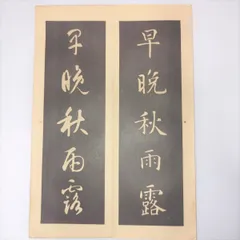 早晩秋雨露
早晩秋雨露